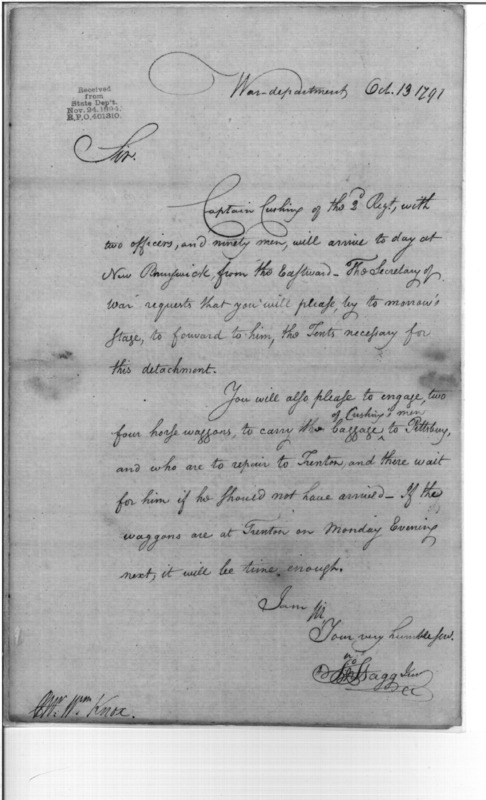 War department Oct. 13 1791
Received
from
State Dep't.
Nov. 24, 1894.
R.P.O. 401310.
Sir.
Captain Cushing of the 2d Regt, with
two officers, and ninety men, will arrive to day at
New Brunswick, from the Eastward – The Secretary of
War requests that you will please, by to morrow's
Stage, to forward to him, the Tents necessary for
this detachment.
You will also please to engage, two
four horse waggons, to carry the baggage of Cushing's men to Pittsburg,
and who are to repair to Trenton, and there wait
for him if he should not have arrived – If the
waggons are at Trenton on Monday Evening
next, it will be time enough.
I am Sir
Your very humble Serv.
Stagg Junr
Wm. Knox.